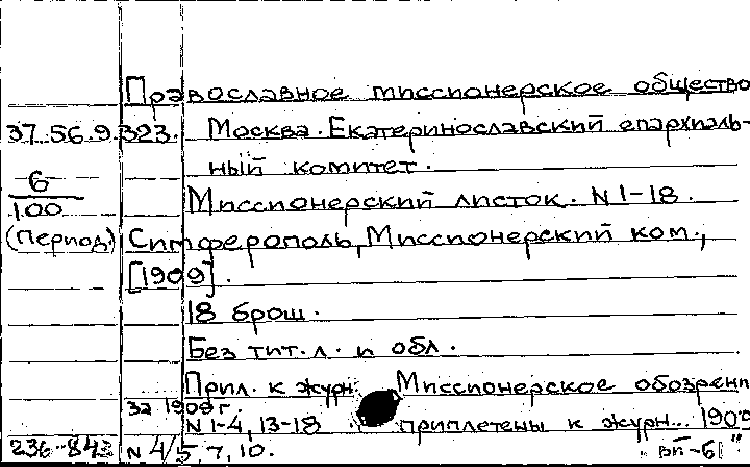 Православное миссионерское общество
37.56.9.323. Москва. Екатеринославский епархиаль-
ный комитет.
6
100
Миссионерский листок. N 1-18.
(Период.) Симферополь, Миссионерский ком.,
[1909].
18 брош.
Без тит. л. и обл.
Прил. к журн. Миссионерское обозрени
за 1909 г.
N 1-4, 13-18 приплетены к журн...
236-843 N 4/5, 7, 10. "ВП-61"